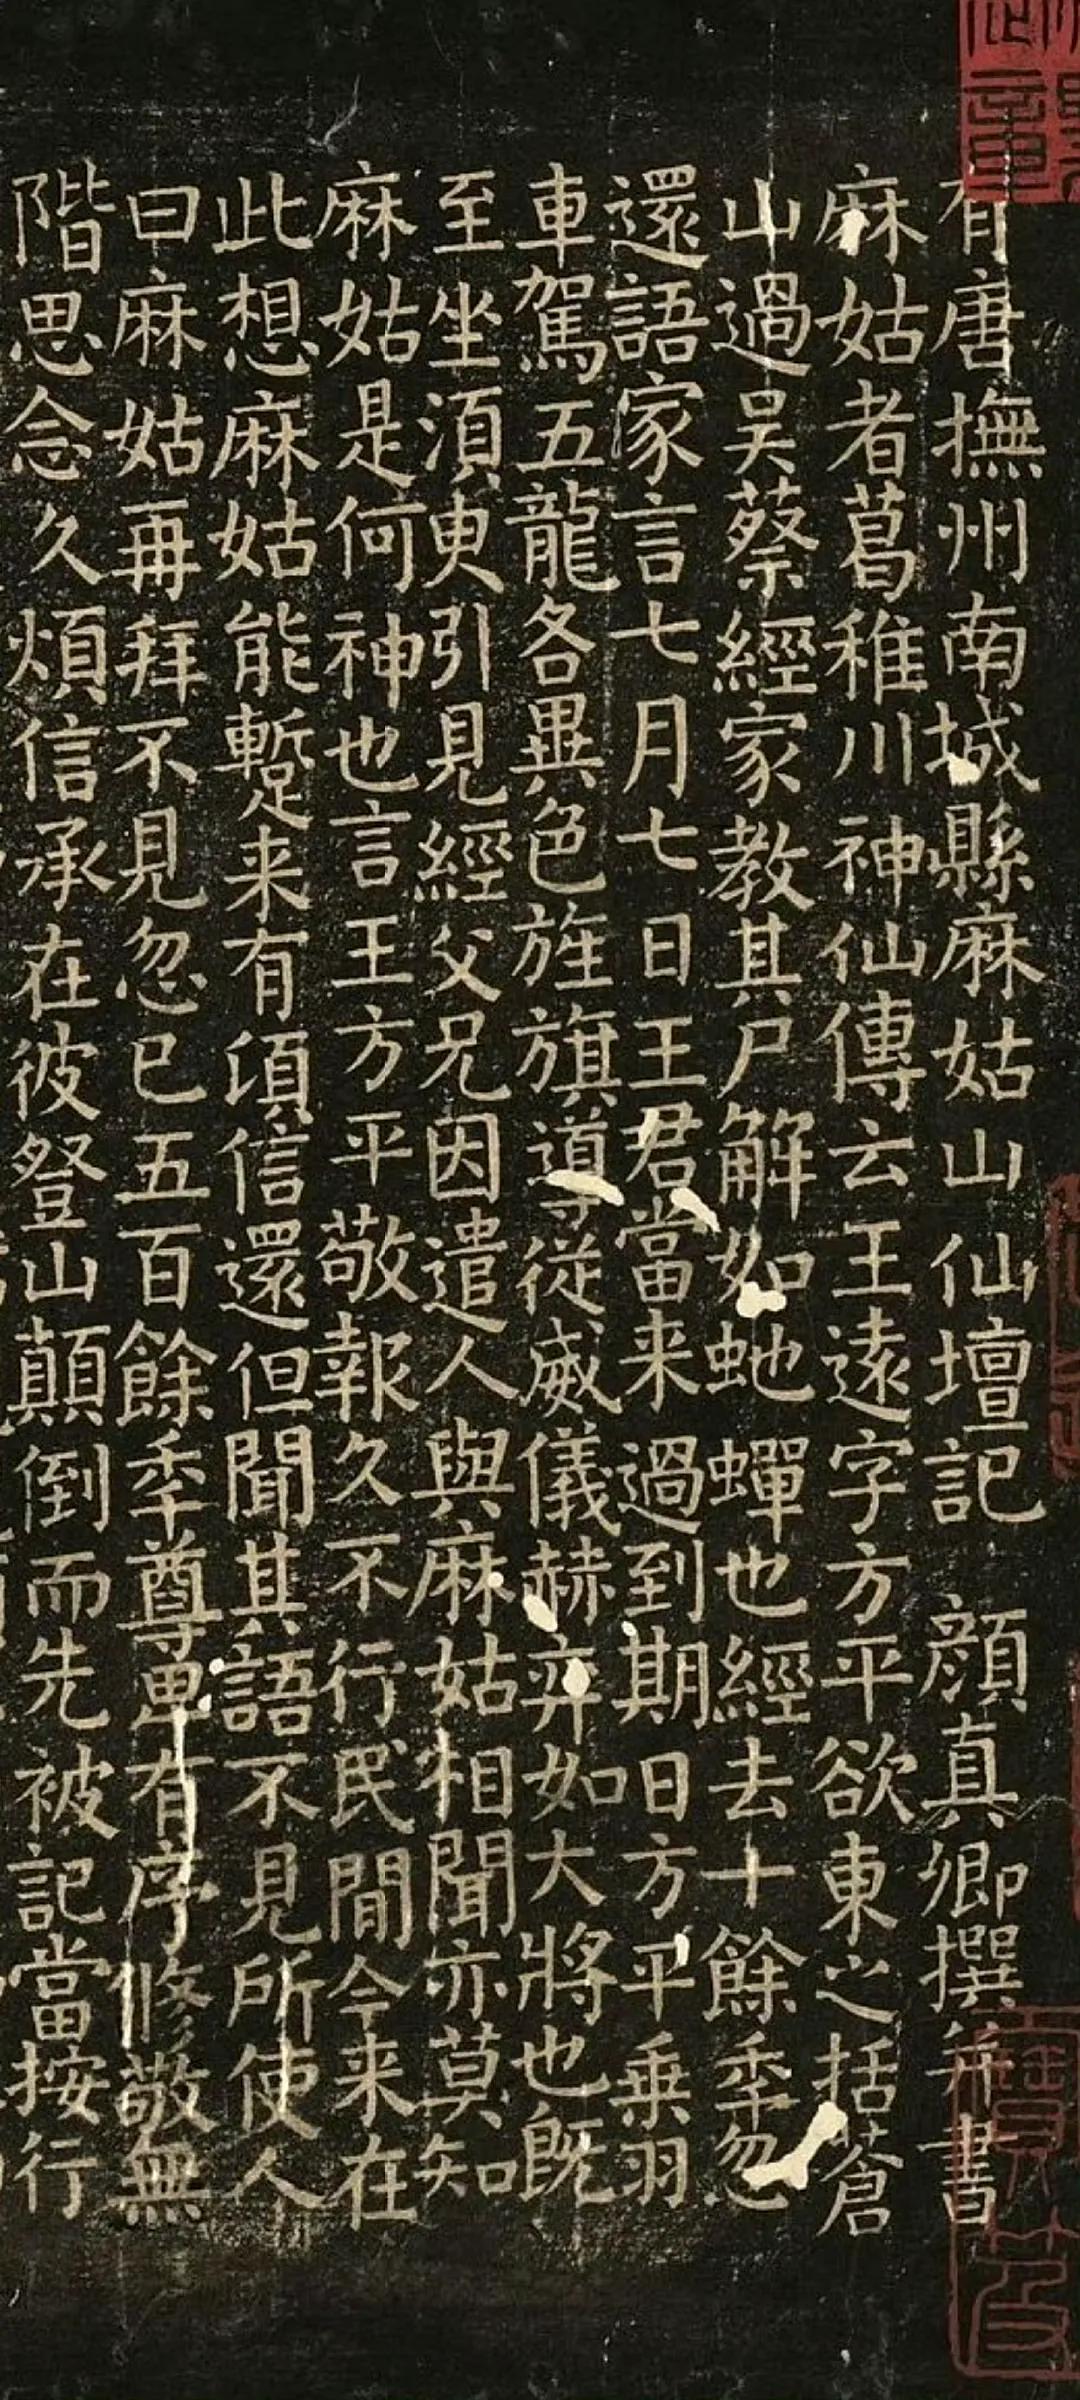 有唐撫州南城縣麻姑山仙壇記 顏真卿撰并書
麻姑者葛稚川神仙傳云王遠字方平欲東之括蒼
山過吳蔡經家教其尸解如虵蟬也經去十餘秊忽
還語家言七月七日王君當来過到期日方平乗羽
車駕五龍各異色旌旗導従威儀赫弈如大將也既
至坐湏臾引見經父兄因遣人與麻姑相聞亦莫知
麻姑是何神也言王方平敬報久不行民間今来在
此想麻姑能蹔来有頃信還但聞其語不見所使人
曰麻姑再拜不見忽已五百餘秊尊卑有序修敬無
階思念久煩信承在彼登山顛倒而先被記當按行